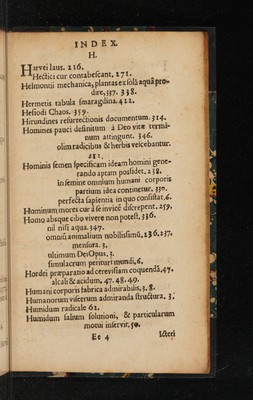 INDEX.
H.
Harvei laus. 216.
Hectici cur contabescant. 271.
Helmontii mechanica, plantas ex solâ aquâ pro-
dire, 337. 338.
Hermetis tabula smaragdina. 422.
Hesiodi Chaos. 359.
Hirundines resurrectionis documentum. 314.
Homines pauci definitum à Deo vitæ termi-
num attingunt. 346.
olim radicibus & herbis vescebantur.
211.
Hominis semen specificam ideam homini gene-
rando aptam possidet. 238.
in semine omnium humani corporis
partium idea continetur. 339.
perfecta sapientia in quo consistat. 6.
Hominum mores cur à se invicē discrepent. 259.
Homo absque cibo vivere non potest, 336.
nil nisi aqua. 347.
omniū animalium nobilissimū, 236. 237.
mensura. 3.
ultimum Dei Opus. 3.
simulacrum perituri mundi, 6.
Hordei præparatio ad cerevisiam coquendā, 47.
alcali & acidum, 47. 48. 49.
Humani corporis fabrica admirabilis, 3. 8.
Humanorum viscerum admiranda structura. 3.
Humidum radicale 62.
Humidum salium solutioni, & particularum
motui inservit, 50.
Ee 4 Icteri